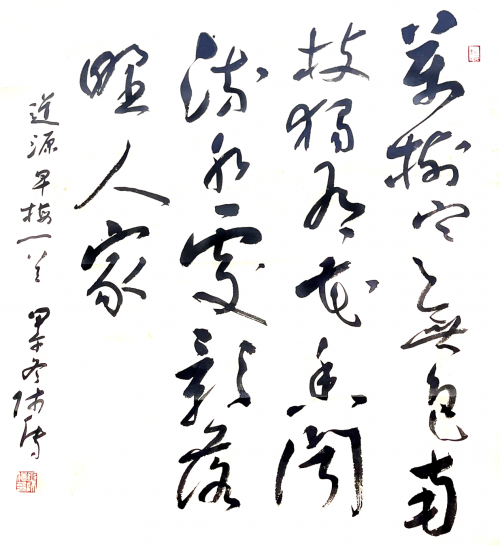 萬樹寒無色南
枝獨有花香聞
流水處影落
野人家
道源早梅一首 甲午冬